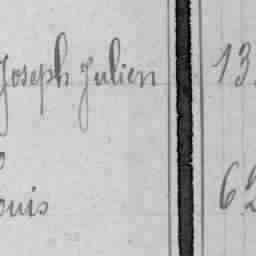 Joseph Julien 13
ouis 62